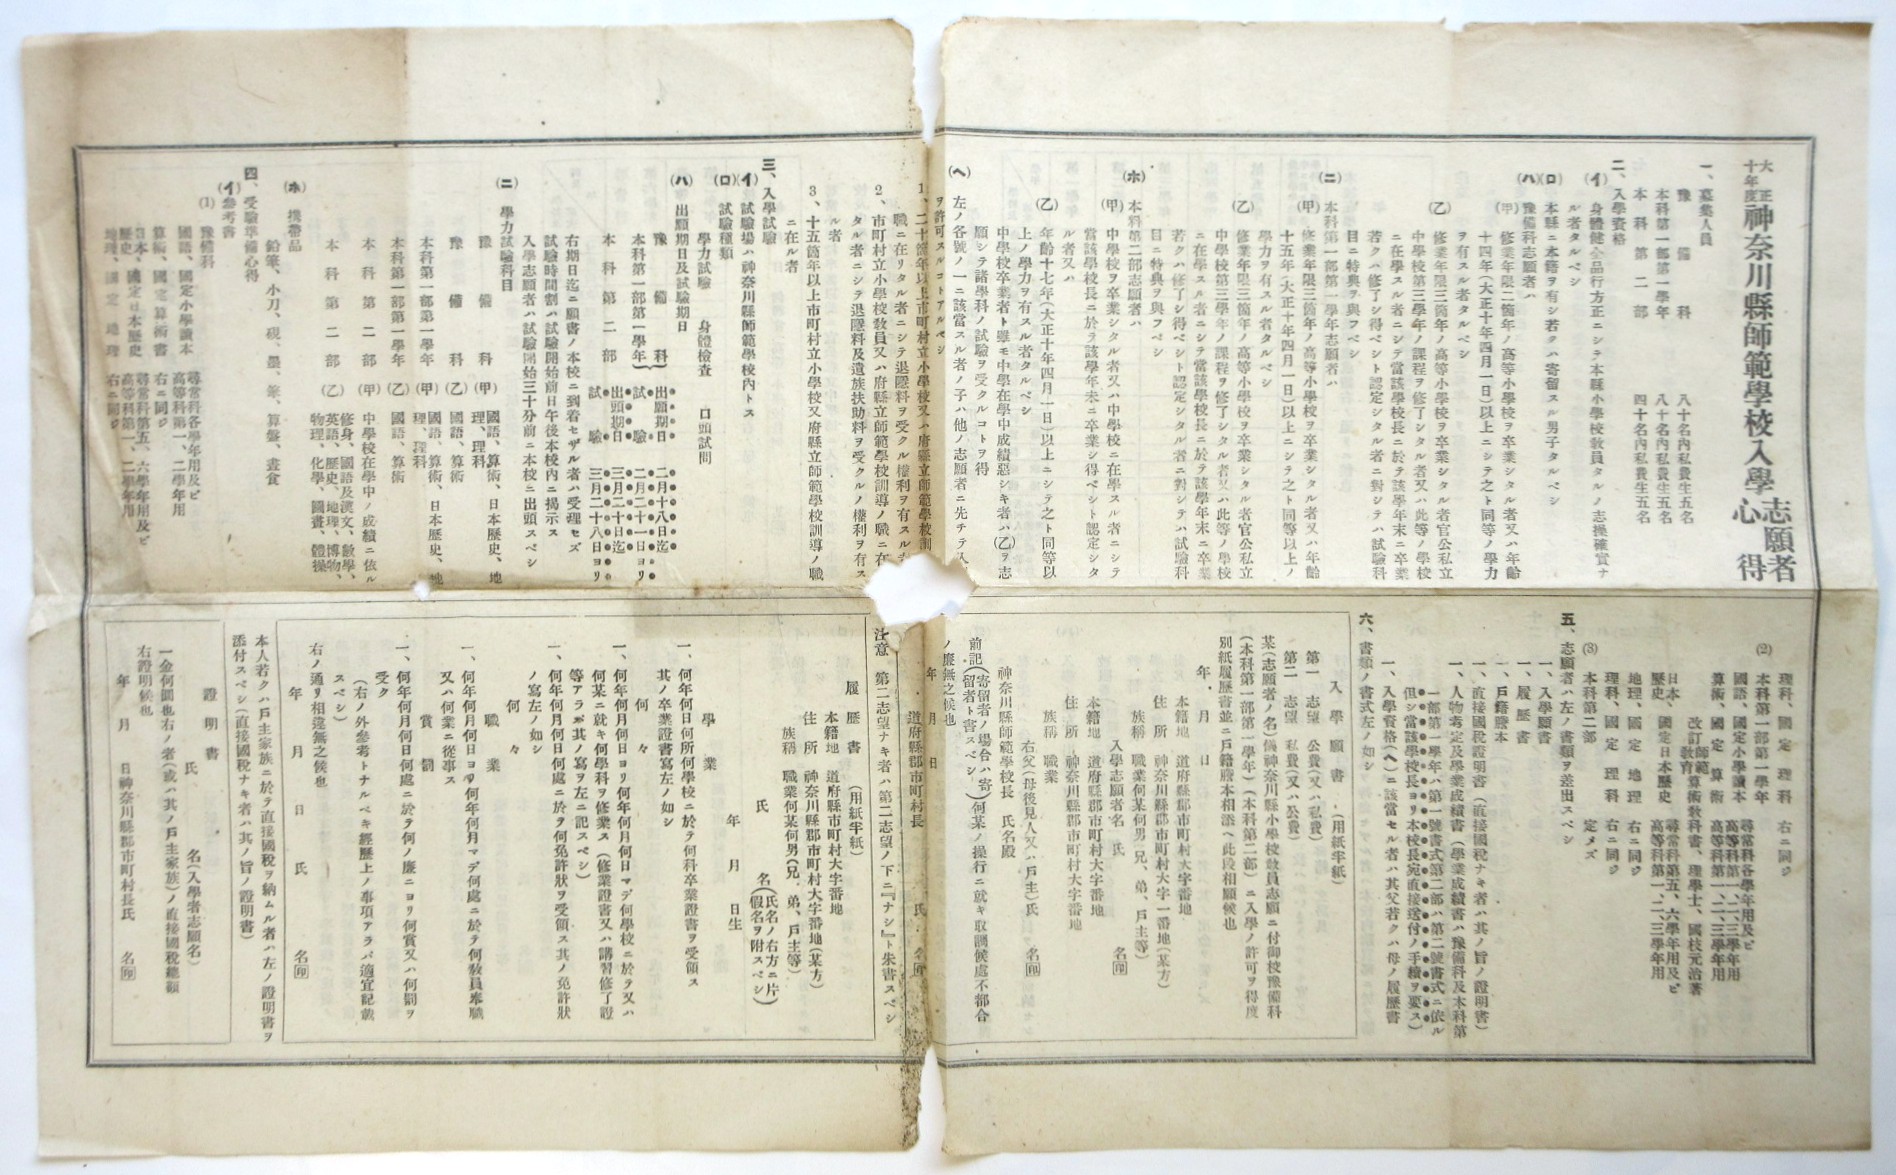 大正十年度神奈川縣師範學校入學志願者心得
一、募集人員
豫備科 八十名內私費生五名
本科第一部第一學年 八十名內私費生五名
本科第二部 四十名內私費生五名
二、入學資格
(イ) 身體健全品行方正ニシテ本縣小學校敎員タルノ志操確實ナ
ル者タルベシ
(ロ) 本縣ニ本籍ヲ有シ若クハ寄留スル男子タルベシ
(ハ) 豫備科志願者ハ
(甲) 修業年限二箇年ノ高等小學校ヲ卒業シタル者又ハ年齡
十四年(大正十年四月一日)以上ニシテ之ト同等ノ學力
ヲ有スル者タルベシ
(乙) 修業年限三箇年ノ高等小學校ヲ卒業シタル者官公私立
中學校第三學年ノ課程ヲ修了シタル者又ハ此等ノ學校
ニ在學スル者ニシテ當該學校長ニ於テ該學年末ニ卒業
若クハ修了シ得ベシト認定シタル者ニ對シテハ試驗科
目ニ特典ヲ與フベシ
(ニ) 本科第一部第一學年志願者ハ
(甲) 修業年限三箇年ノ高等小學校ヲ卒業シタル者又ハ年齡
十五年(大正十年四月一日)以上ニシテ之ト同等以上ノ
學力ヲ有スル者タルベシ
(乙) 修業年限三箇年ノ高等小學校ヲ卒業シタル者官公私立
中學校第三學年ノ課程ヲ修了シタル者又ハ此等ノ學校
ニ在學スル者ニシテ當該學校長ニ於テ該學年末ニ卒業
若クハ修了シ得ベシト認定シタル者ニ對シテハ試驗科
目ニ特典ヲ與フベシ
(ホ) 本科第二部志願者ハ
(甲) 中學校ヲ卒業シタル者又ハ中學校ニ在學スル者ニシテ
當該學校長ニ於テ該學年末ニ卒業シ得ベシト認定シタ
ル者又ハ
(乙) 年齡十七年(大正十年四月一日)以上ニシテ之ト同等以
上ノ學力ヲ有スル者タルベシ
中學校卒業者ト雖モ中學在學中成績惡シキ者ハ(乙)ヲ志
願シテ諸學科ノ試驗ヲ受クルコトヲ得
(ヘ) 左ノ各號ノ一ニ該當スル者ノ子ハ他ノ志願者ニ先テ入
ヲ許可スルコトアルベシ
1、二十箇年以上市町村立小學校又ハ府縣立師範學校訓
職ニ在リタル者ニシテ退隱料ヲ受クル權利ヲ有スル
2、市町村立小學校敎員又ハ府縣立師範學校訓導ノ職ニ在
タル者ニシテ退隱料及遺族扶助料ヲ受クルノ權利ヲ有ス
ル者
3、十五箇年以上市町村立小學校又府縣立師範學校訓導ノ職
ニ在ル者
三、入學試驗
(イ) 試驗場ハ神奈川縣師範學校內トス
(ロ) 試驗種類
學力試驗 身體檢査 口頭試問
(ハ) 出願期日及試驗期日
豫備科
本科第一部第一學年
出願期日 二月十八日迄
試驗 二月二十一日ヨリ
本科第二部
出願期日 三月二十日迄
試驗 三月二十八日ヨリ
右期日迄ニ願書ノ本校ニ到着セザル者ハ受理セズ
試驗時間割ハ試驗開始前日午後本校內ニ揭示ス
入學志願者ハ試驗開始三十分前ニ本校ニ出頭スベシ
(ニ) 學力試驗科目
豫備科 (甲) 國語、算術、日本歷史、地理、理科
豫備科 (乙) 國語、算術
本科第一部第一學年 (甲) 國語、算術、日本歷史、地理、理科
本科第一部第一學年 (乙) 國語、算術
本科第二部 (甲) 中學校在學中ノ成績ニ依ル
本科第二部 (乙) 修身、國語及漢文、數學、英語、歷史、地理、博物、物理、化學、圖畫、體操
(ホ) 携帶品
鉛筆、小刀、硯、墨、筆、算盤、晝食
四、受驗準備心得
(イ) 參考書
(1) 豫備科
國語、國定小學讀本 尋常科各學年用及ビ高等科第一、二學年用
算術、國定算術書 右ニ同ジ
日本歷史、國定日本歷史 尋常科第五、六學年用及ビ高等科第一、二學年用
地理、國定地理 右ニ同ジ
理科、國定理科 右ニ同ジ
(2) 本科第一部第一學年
國語、國定小學讀本 尋常科各學年用及ビ高等科第一、二、三學年用
算術、國定算術 高等科第一、二、三學年用
改訂師範敎育算術敎科書、理學士、國枝元治著
日本歷史、國定日本歷史 尋常科第五、六學年用及ビ高等科第一、二、三學年用
地理、國定地理 右ニ同ジ
理科、國定理科 右ニ同ジ
(3) 本科第二部 定メズ
五、志願者ハ左ノ書類ヲ差出スベシ
一、入學願書
一、履歷書
一、戶籍謄本
一、直接國稅證明書(直接國稅ナキ者ハ其ノ旨ノ證明書)
一、人物考定及學業成績書(學業成績書ハ豫備科及本科第
一部第一學年ハ第一號書式第二部ハ第二號書式ニ依ル
但シ當該學校長ヨリ本校長宛直接送付ノ手續ヲ要ス)
一、入學資格(ヘ)ニ該當セル者ハ其父若クハ母ノ履歷書
六、書類ノ書式左ノ如シ
入學願書 (用紙半紙)
第一 志望 公費(又ハ私費)
第二 志望 私費(又ハ公費)
某(志願者ノ名)儀神奈川縣小學校敎員志願ニ付御校豫備科
(本科第一部第一學年)(本科第二部)ニ入學ノ許可ヲ得度
別紙履歷書並ニ戶籍謄本相添ヘ此段相願候也
年 月 日
本籍地 道府縣郡市町村大字番地
住所 神奈川縣郡市町村大字一番地(某方)
族稱 職業何某何男(兄、弟、戶主等)
入學志願者 氏名㊞
本籍地 道府縣郡市町村大字番地
住所 神奈川縣郡市町村大字番地
族稱 職業
右父(母後見人又ハ戶主)氏名㊞
神奈川縣師範學校長 氏名殿
前記(寄留者ノ場合ハ寄留者ト書スベシ)何某ノ操行ニ就キ取調候處不都合
ノ廉無之候也
年 月 日
道府縣郡市町村長 氏名㊞
注意 第二志望ナキ者ハ第二志望ノ下ニ『ナシ』ト朱書スベシ
履歷書 (用紙半紙)
本籍地 道府縣市町村大字番地
住所 神奈川縣郡市町村大字番地(某方)
族稱 職業何某何男(兄、弟、戶主等)
氏名(氏名ノ右方ニ片假名ヲ附スベシ)
年 月 日生
學業
一、何年何日何所何學校ニ於テ何科卒業證書ヲ受領ス
其ノ卒業證書寫左ノ如シ
何々
一、何年何月何日ヨリ何年何月何日マデ何學校ニ於テ又ハ
何某ニ就キ何學科ヲ修業ス(修業證書又ハ講習修了證
等アラバ其ノ寫ヲ左ニ記スベシ)
一、何年何月何日何處ニ於テ何免許狀ヲ受領ス其ノ免許狀
ノ寫左ノ如シ
何々
職業
一、何年何月何日ヨリ何年何月マデ何處ニ於テ何敎員奉職
又ハ何業ニ從事ス
賞罰
一、何年何月何日何處ニ於テ何ノ廉ニヨリ何賞又ハ何罰ヲ
受ク
(右ノ外參考トナルベキ經歷上ノ事項アラバ適宜記載
スベシ)
右ノ通リ相違無之候也
年 月 日 氏名㊞
本人若クハ戶主家族ニ於テ直接國稅ヲ納ムル者ハ左ノ證明書ヲ
添付スベシ(直接國稅ナキ者ハ其ノ旨ノ證明書)
證明書
氏名(入學者志願名)
一金何圓也右ノ者(或ハ其ノ戶主家族)ノ直接國稅總額
右證明候也
年 月 日神奈川縣郡市町村長氏名㊞